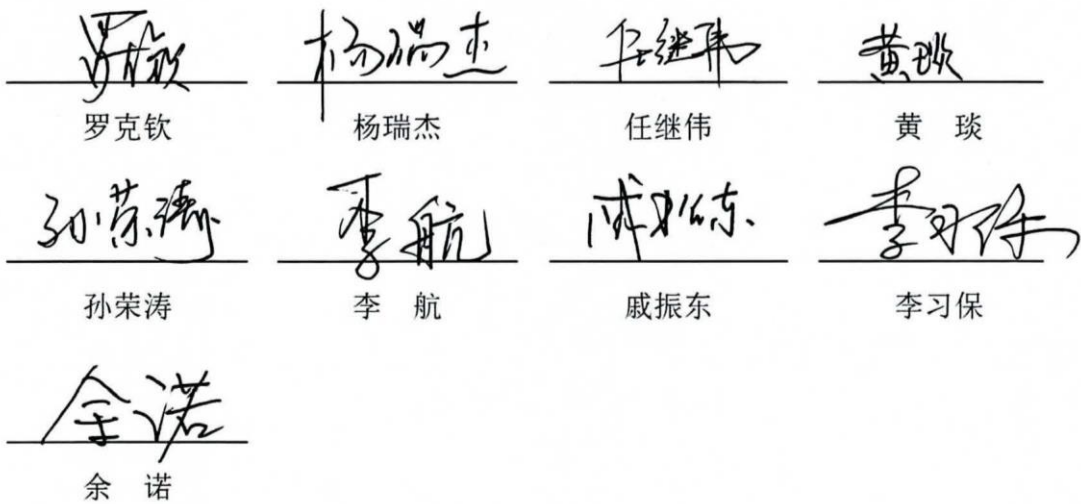 罗克钦 杨瑞杰 任继伟 黄琰
罗克钦 杨瑞杰 任继伟 黄 琰
孙荣涛 李航 戚振东 李习保
孙荣涛 李 航 戚振东 李习保
余诺
余 诺